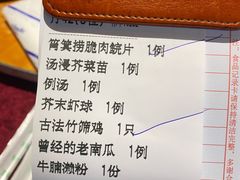 筲箕捞脆肉皖片 1例
汤漫芥菜苗 1例
例汤 1例
芥末虾球 1例
古法竹筛鸡 1只
曾经的老南瓜 1例
牛腩濑粉 1份
食品记录卡请保持清洁完整